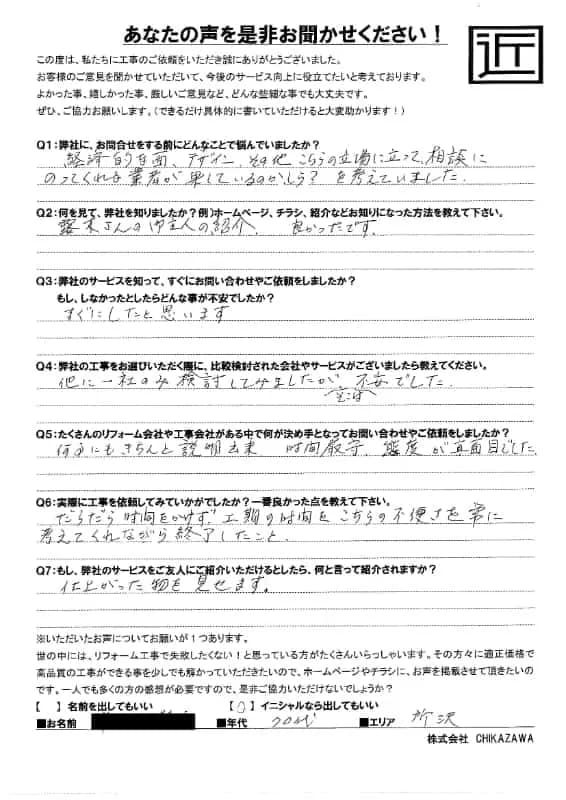 あなたの声を是非お聞かせください！
近
この度は、私たちに工事のご依頼をいただき誠にありがとうございました。
お客様のご意見を聞かせていただいて、今後のサービス向上に役立てたいと考えております。
よかった事、嬉しかった事、厳しいご意見など、どんな些細な事でも大丈夫です。
ぜひ、ご協力お願いします。（できるだけ具体的に書いていただけると大変助かります！）
Q1：弊社に、お問合せをする前にどんなことで悩んでいましたか？
経済的な面、デザイン、その他 こちらの立場に立って、相談に
のってくれる業者が 果しているのかしら？ を考えていました.
Q2：何を見て、弊社を知りましたか？例）ホームページ、チラシ、紹介などお知りになった方法を教えて下さい。
さんの御主人の紹介、 良かったです.
Q3：弊社のサービスを知って、すぐにお問い合わせやご依頼をしましたか？
もし、しなかったとしたらどんな事が不安でしたか？
すぐにしたと思います
Q4：弊社の工事をお選びいただく際に、比較検討された会社やサービスがございましたら教えてください。
他に一社のみ検討してみましたが、不安でした.
そこは
Q5：たくさんのリフォーム会社や工事会社がある中で何が決め手となってお問い合わせやご依頼をしましたか？
何事にもきちんと説明出来 時間厳守、態度が真面目でした.
Q6：実際に工事を依頼してみていかがでしたか？一番良かった点を教えて下さい。
だらだら時間をかけず、工期の時間をこちらの不便さを常に
考えてくれながら終了したこと.
Q7：もし、弊社のサービスをご友人にご紹介いただけるとしたら、何と言って紹介されますか？
仕上がった物を見せます。
※いただいたお声についてお願いが１つあります。
世の中には、リフォーム工事で失敗したくない！と思っている方がたくさんいらっしゃいます。その方々に適正価格で
高品質の工事ができる事を少しでも解かっていただきたいので、ホームページやチラシに、お声を掲載させて頂きたいの
です。一人でも多くの方の感想が必要ですので、是非ご協力いただけないでしょうか？
【 】名前を出してもいい 【○】イニシャルなら出してもいい
■お名前 ■年代 70代 ■エリア 所沢
株式会社 CHIKAZAWA